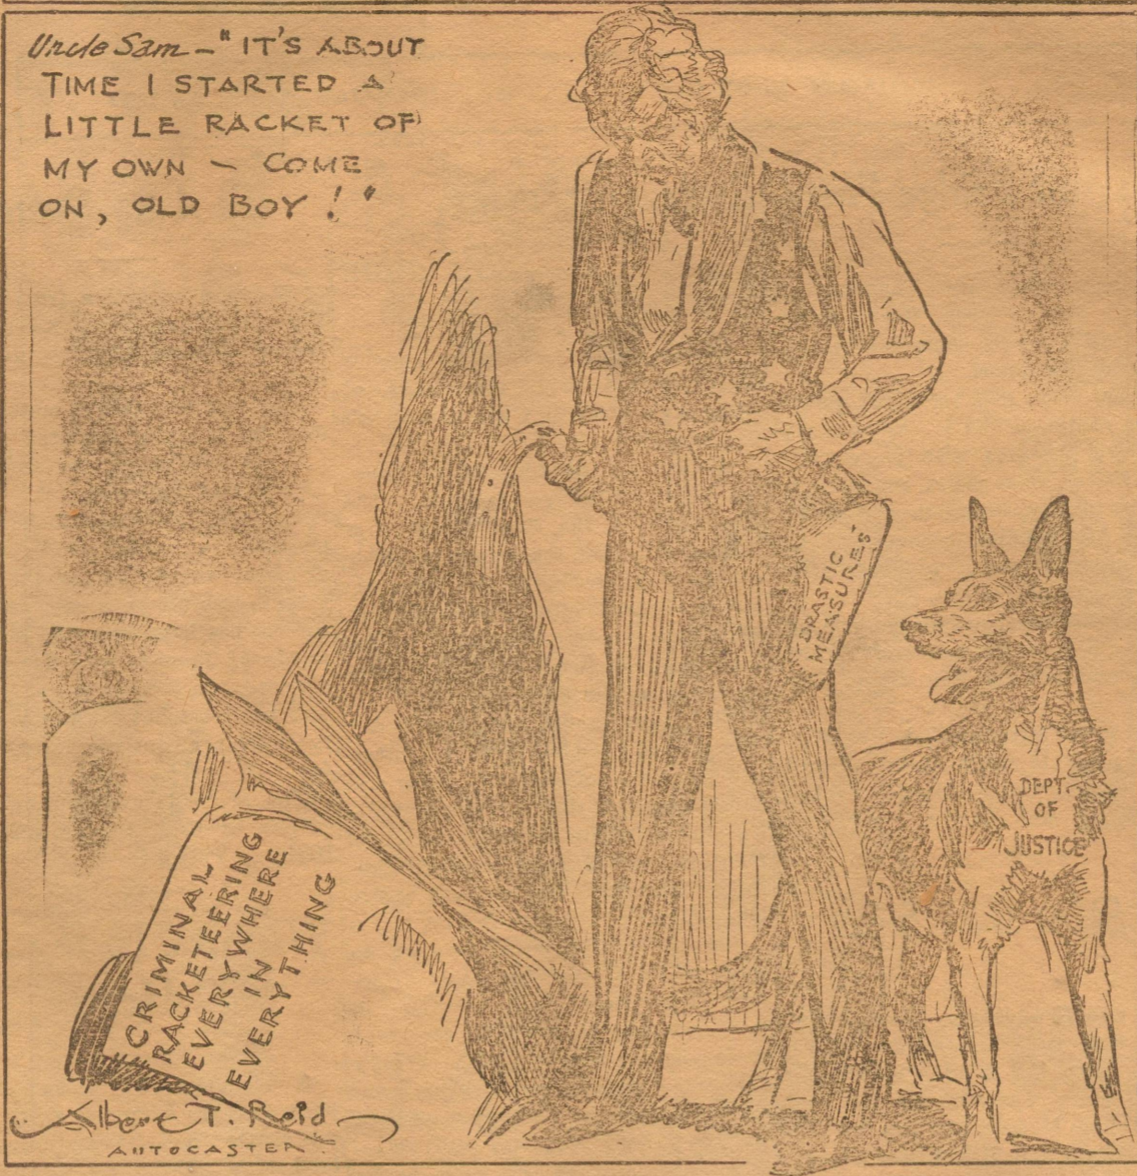 Uncle Sam — "IT'S ABOUT
TIME I STARTED A
LITTLE RACKET OF
MY OWN — COME
ON, OLD BOY!"
DRASTIC
MEASURES
DEPT.
OF
JUSTICE
CRIMINAL
RACKETEERING
EVERYWHERE
IN
EVERYTHING
Albert T. Reid
AUTOCASTER